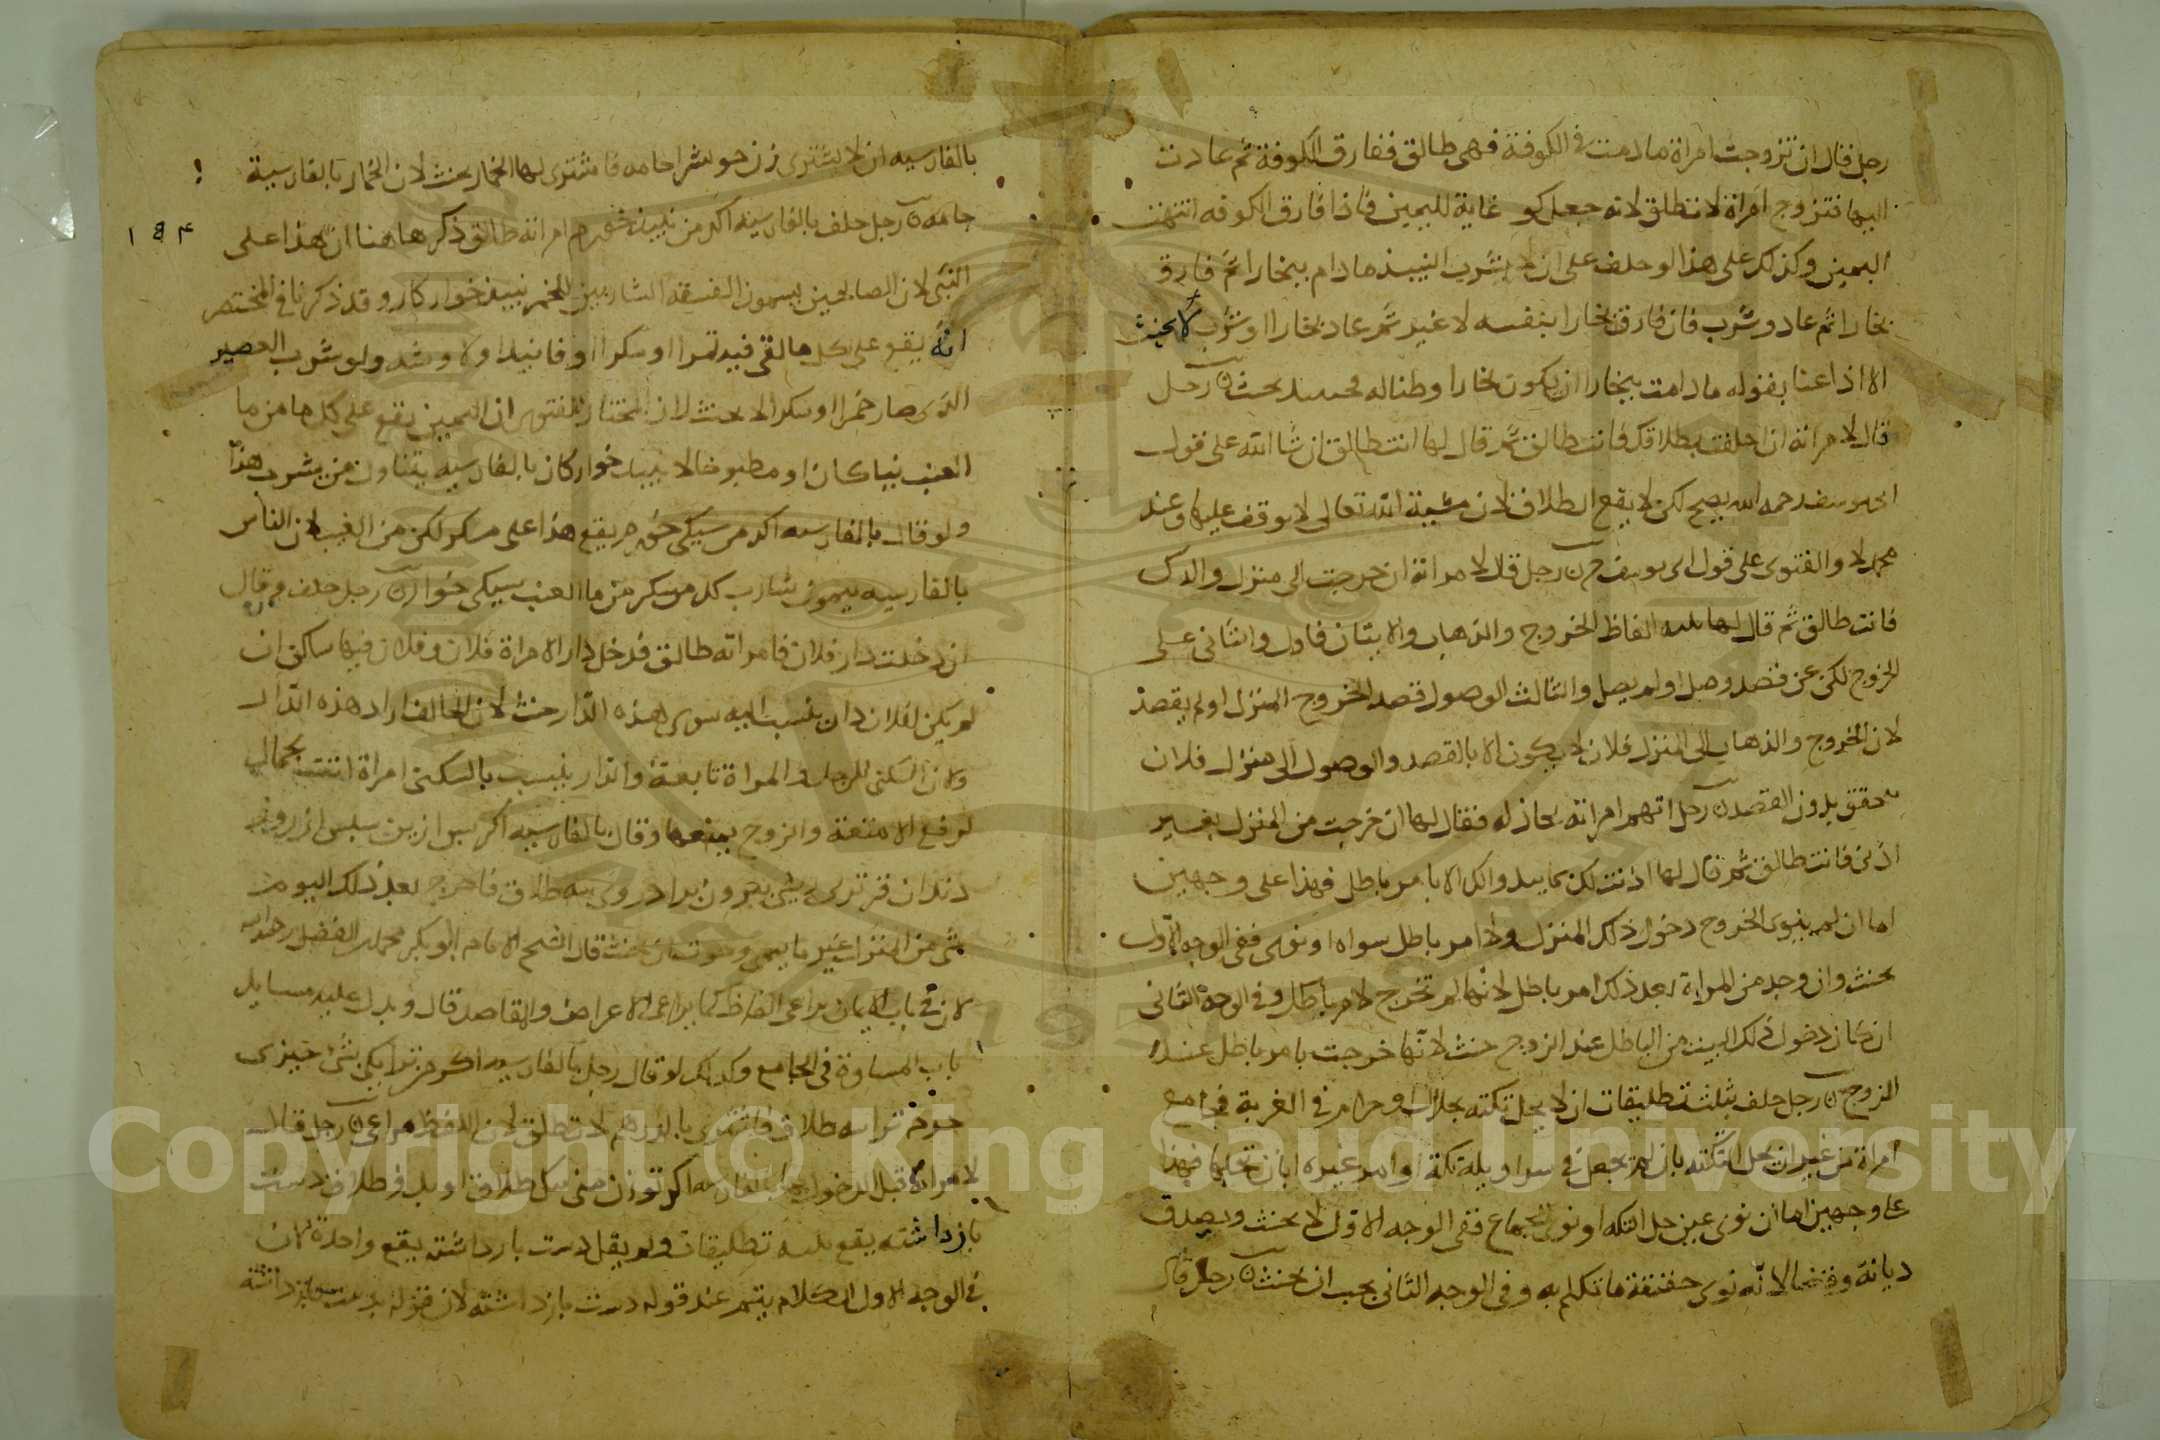 رجل قال ان تزوجت امراة ما دمت في الكوفة فهي طالق ففارق الكوفة ثم عادت
اليها فتزوج امراة لا تطلق لانه جعل كو غاية لليمين فاذا فارق الكوفه انتهت
اليمين وكذلك على هذا لو حلف على ان لا يشرب النبيذ ما دام ببخارا ثم فارق
بخارا ثم عاد وشرب فان فارق بخارا بنفسه لا غير ثم عاد بخارا وشرب لا يحنث
الا اذا عنا بقوله ما دامت ببخارا ان يكون بخارا وطنا له فحينئذ يحنث رجل
قال لامراته ان حلفت بطلاقك فانت طالق ثم قال لها انت طالق ان شا الله على قول
ابي يوسف رحمه الله يصح لكن لا يقع الطلاق لان مشيية الله تعالى لا يوقف عليها وعند
محمد لا والفتوى على قول ابى يوسف رجل قال لامراته ان خرجت الى منزل والدك
فانت طالق ثم قال لها ثلثه الفاظ الخروج والذهاب والاتيان فاول والثانى على
الخروج لكن عن قصد وصل او لم يصل والثالث الوصول قصد الخروج المنزل او لم يقصد
لان الخروج والذهاب الى المنزل فلان لا يكون الا بالقصد والوصول الى منزل فلان
تحقق بدون القصد رجل اتهم امراته بجار له فقال لها ان خرجت من المنزل بغير
اذنى فانت طالق ثم قال لها اذنت لك بما يبدو لك الا بامر باطل فهذا على وجهين
اما ان لم ينوى الخروج دخول ذلك المنزل ولا امر باطل سواه او نوى ففى الوجه الاول
يحنث وان وجد من المراة بعد ذلك امر باطل لانها لم تخرج لامر باطل وفى الوجه الثانى
ان كان دخول ذلك البيت من الباطل عند الزوج حنث لانها خرجت بامر باطل عند
الزوج رجل حلف بثلث تطليقات ان لا يحل تكته بحلال وحرام في الغربة فجامع
امراة من غير ان يحل التكته بان لم يجعل فى سراويله تكة او امر غيره بان تحلها فهذا
على وجهين اما ان نوى عين حل التكه او نوى الجماع ففى الوجه الاول لا يحنث ويصدق
ديانة وقضا لانه نوى حقيقة ما تكلم به وفى الوجه الثانى يجب ان يحنث رجل قال
بالفارسيه ان لا يشترى زن خويشرا جامه فاشترى لها الخمار يحنث لان الخمار بالفارسية
جامه رجل حلف بالفارسيه اكر من نبيذ خورم امراته طالق ذكر هاهنا ان هذا على
النى لان الصالحين يسمون الفسقه الشاربين الخمر نبيذ خواركان وقد ذكرنا فى المختصر
انه يقع على كل ما القى فيه تمرا او سكرا او فانيدا ولو شرب العصير
الذى صار خمرا او سكرا لا يحنث لان المختار للفتوى ان اليمين يقع على كل ما من ما
العنب نيا كان او مطبوخا لا نبيذ خواركان بالفارسيه يتناول من يشرب هذا
ولو قال بالفارسيه اكر من سيكى خورم يقع هذا على مسكر لكن من العنب لان الناس
بالفارسيه يسمون شارب كل مسكر من ما العنب سيكى خوار رجل حلف وقال
ان دخلت دار فلان فامراته طالق فدخل دار الامراة فلان وفلان فيها ساكن ان
لم يكن لفلان دار ينسب اليه سوى هذه الدار حنث لان الحالف اراد هذه الدار
ولان السكنى للرجل والمراة تابعة والدار ينسب بالسكنى امراة اتت بحمال
لرفع الامتعة والزوج يمنعها وقال بالفارسيه اكر بس ازين
فاخرج بعد ذلك اليوم
شى من المنزل غير ما يحنث قال الشيخ الامام ابو بكر محمد بن الفضل رحمه الله
لان فى باب الايمان يراعى الالفاظ كما يراعى الاعراض والمقاصد قال ويدل عليه مسايل
باب المساوة فى الجامع وكذلك لو قال رجل بالفارسيه اكر من ترا بكى بشئ چيزى
خرم ترا سه طلاق فاشترى بالدرهم لا تطلق لان اللفظ مراعى رجل قال
لامراته قبل الدخول بها بالفارسيه اكر تو زن منى يك طلاق ودو طلاق دست
بازداشته يقع ثلثه تطليقات ولو لم يقل دست بازداشته يقع واحدة لان
فى الوجه الاول الكلام يتم عند قوله دست بازداشته لان قوله دست بازداشته
١٨٤
Copyright © King Saud University
1957